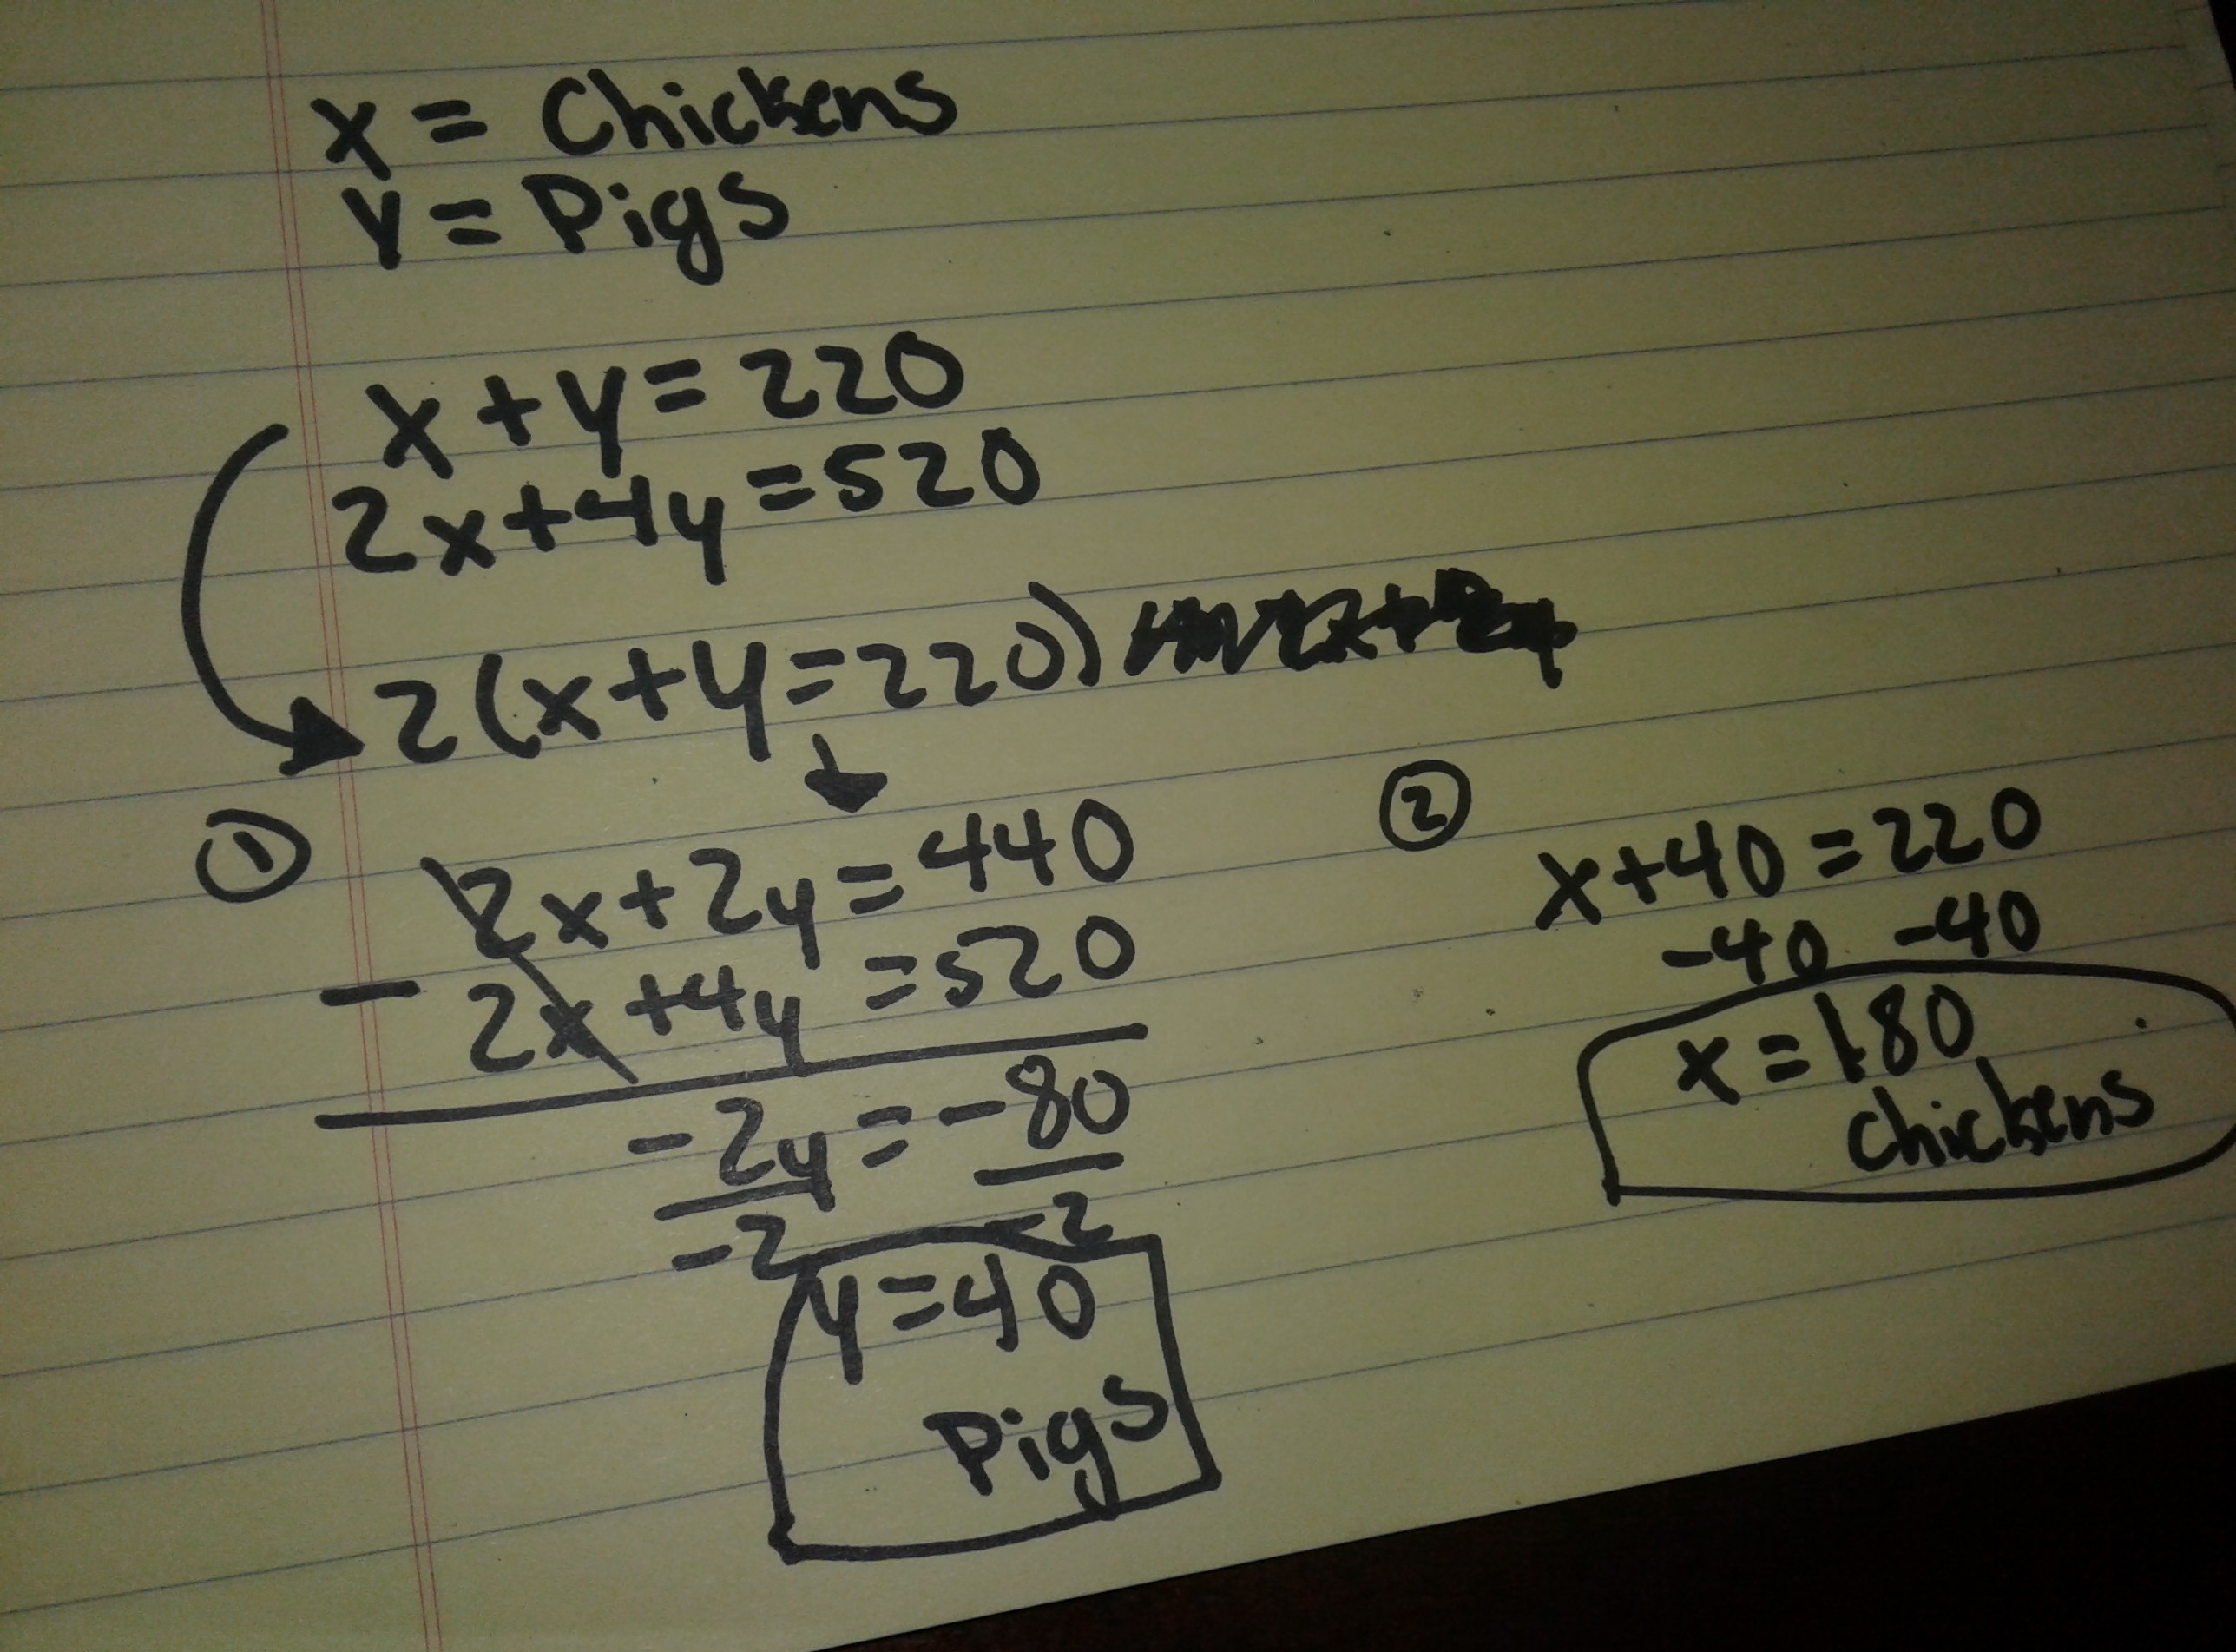 x = Chickens
y = Pigs
x + y = 220
2x + 4y = 520
2(x + y = 220)
①
2x + 2y = 440
- 2x + 4y = 520
-2y = -80
-2 -2
y = 40
Pigs
②
x + 40 = 220
-40 -40
x = 180
chickens